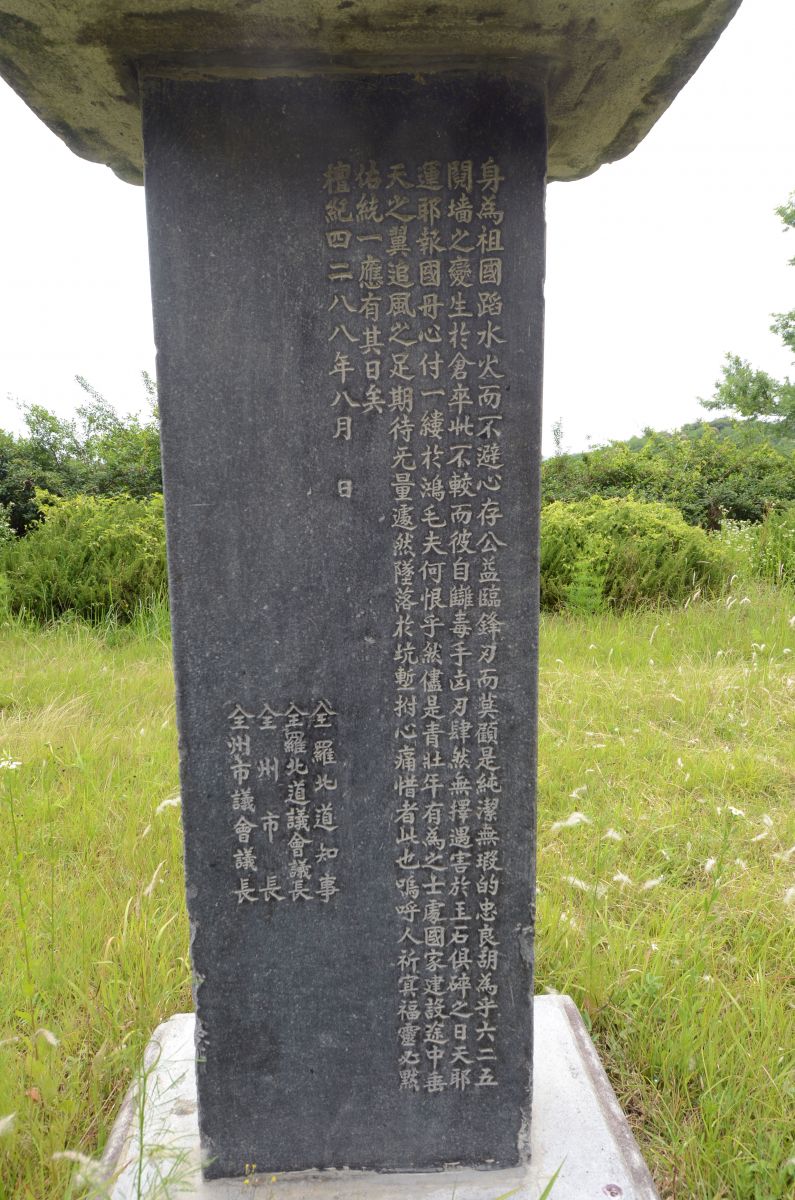 身為祖國蹈水火而不避心存公益臨鋒刃而莫顧是純潔無瑕的忠良胡為乎六二五
鬩墻之變生於倉卒此不較而彼自讎毒手凶刃肆然無擇遇害於玉石俱碎之日天耶
運耶報國丹心付一縷於鴻毛夫何恨乎然儘是青壯年有為之士處國家建設途中垂
天之翼追風之足期待无量遽然墜落於坑塹拊心痛惜者此也嗚呼人祈冥福靈必默
佑統一應有其日矣
檀紀四二八八年八月 日
全羅北道知事
全羅北道議會議長
全州市長
全州市議會議長